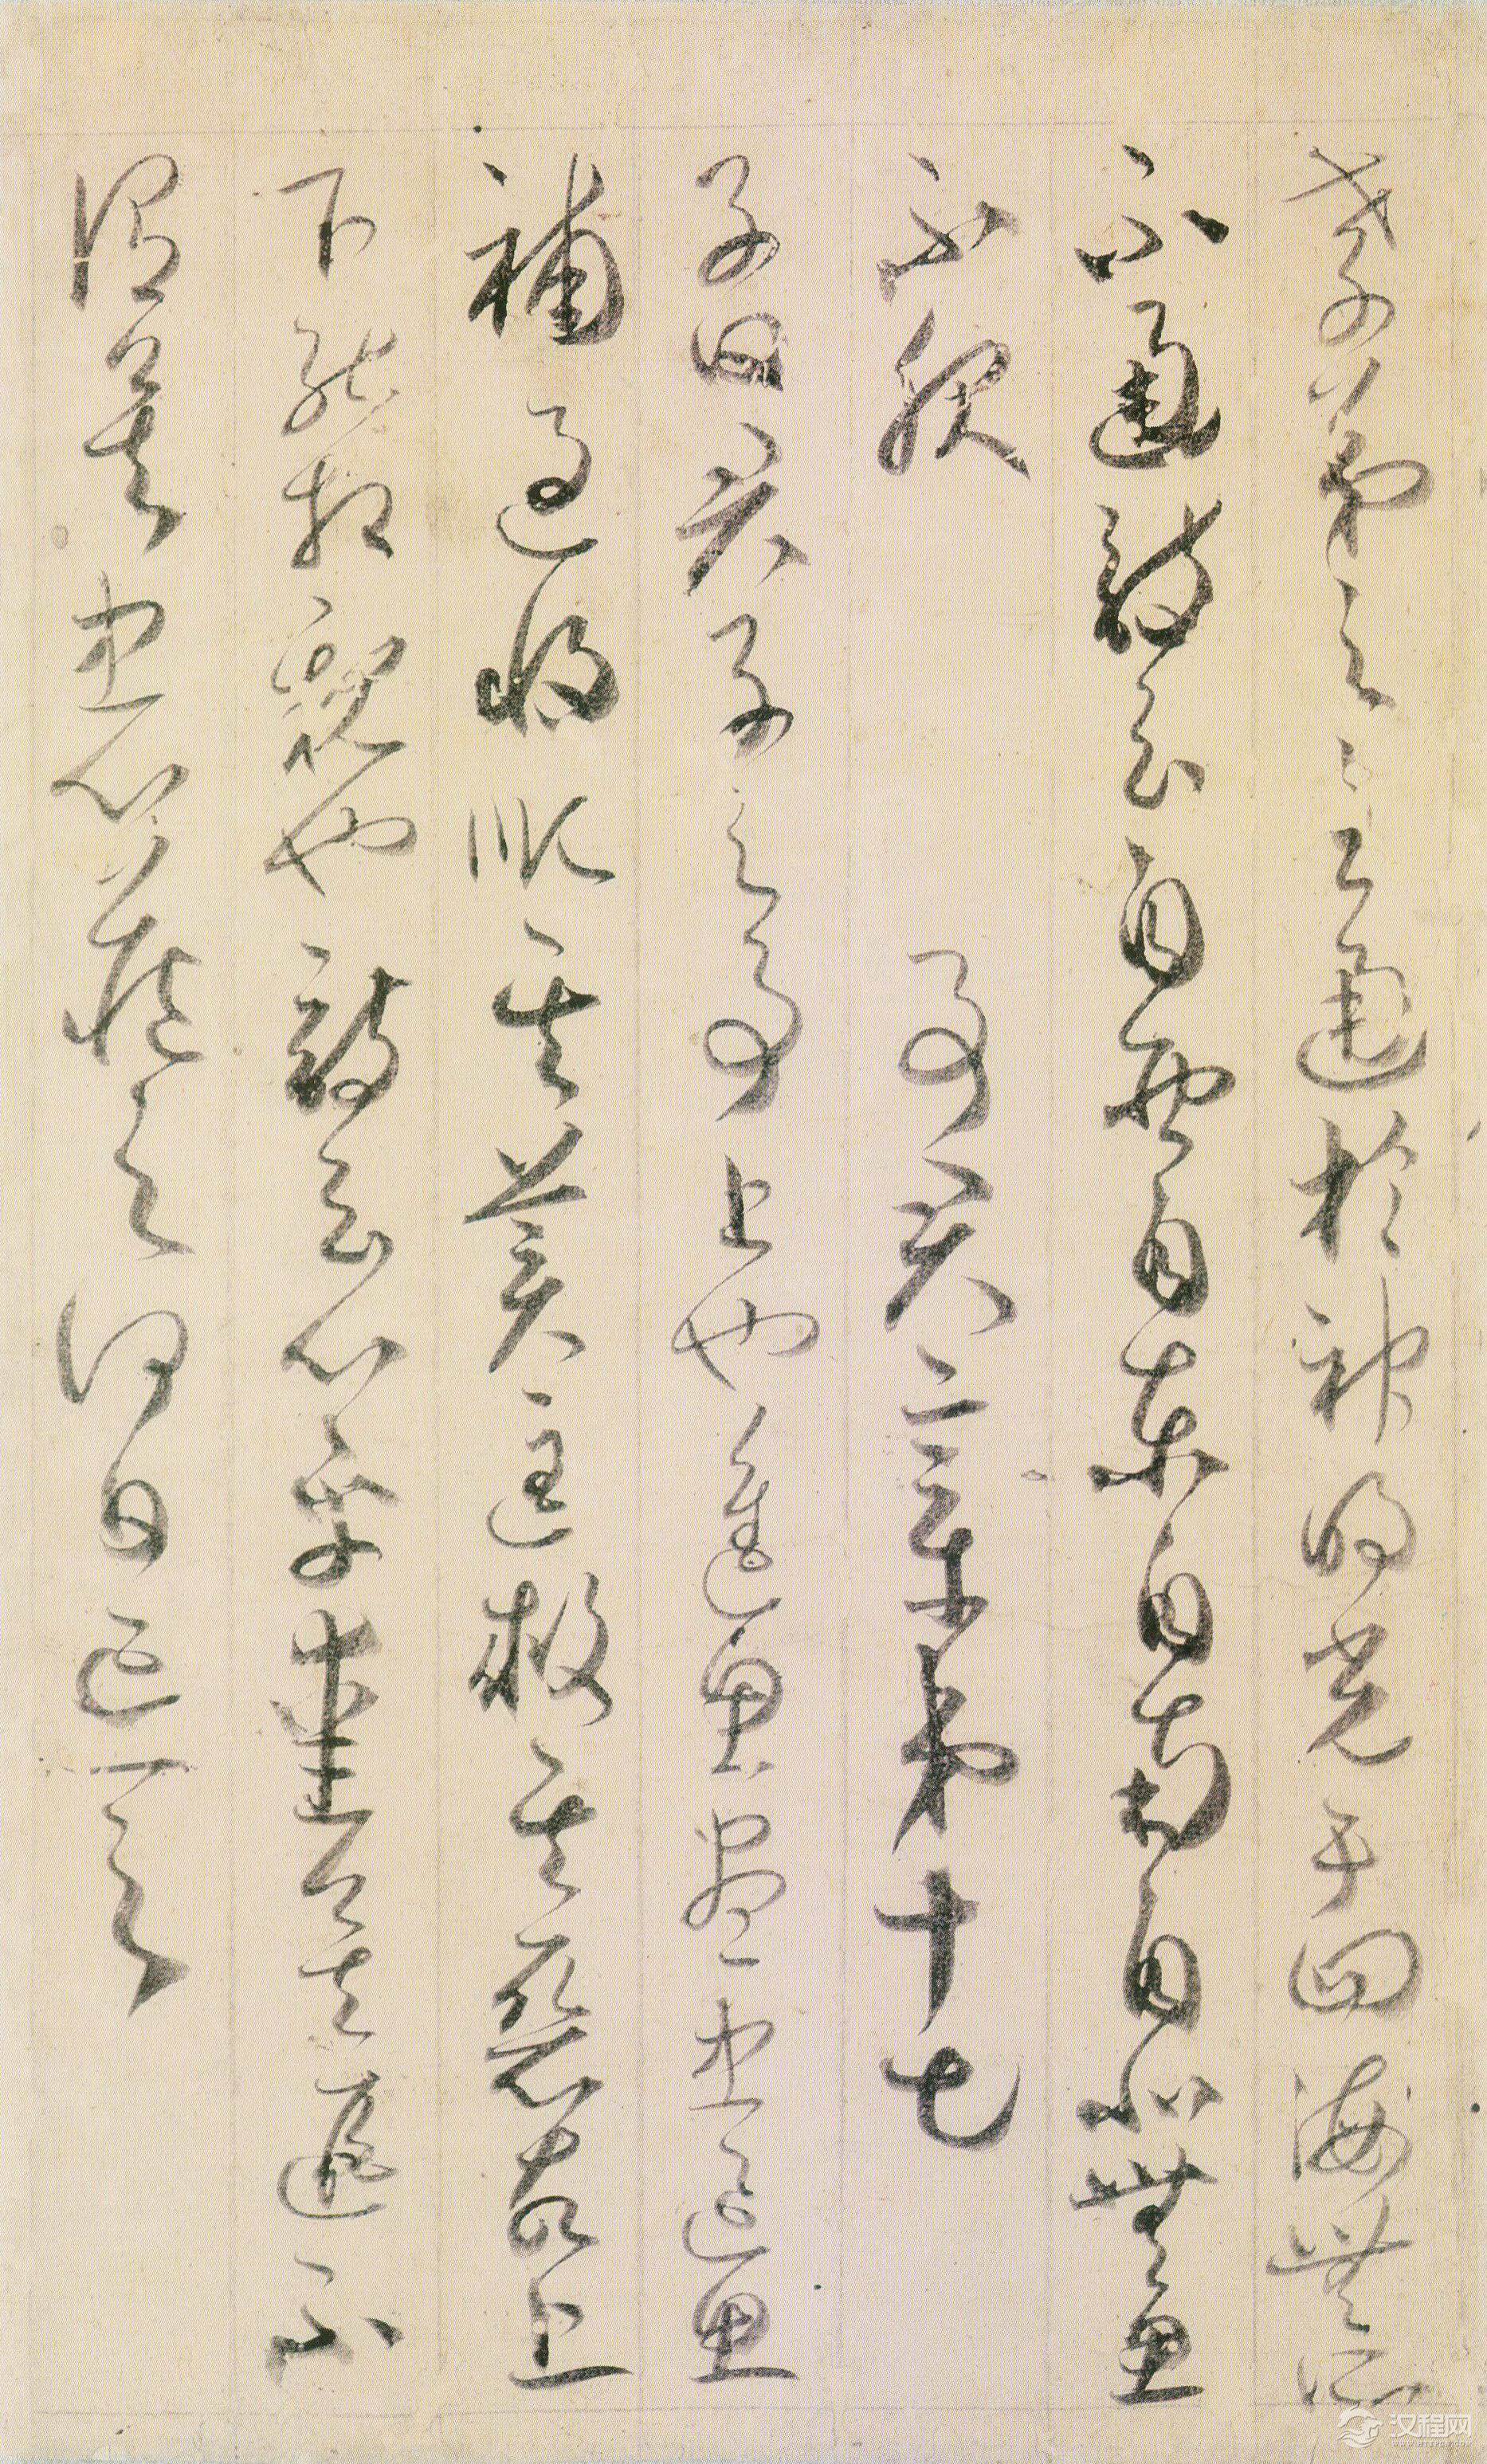 孝弟之至通於神明光于四海無所
不通詩云自西自東自南自北無思
不服　事君章第十七
子曰君子之事上也進思盡忠退思
補過將順其美匡救其惡故上
下能相親也詩云心乎愛矣遐不
謂矣中心藏之何日忘之
汉程网
WWW.HTTPCN.COM